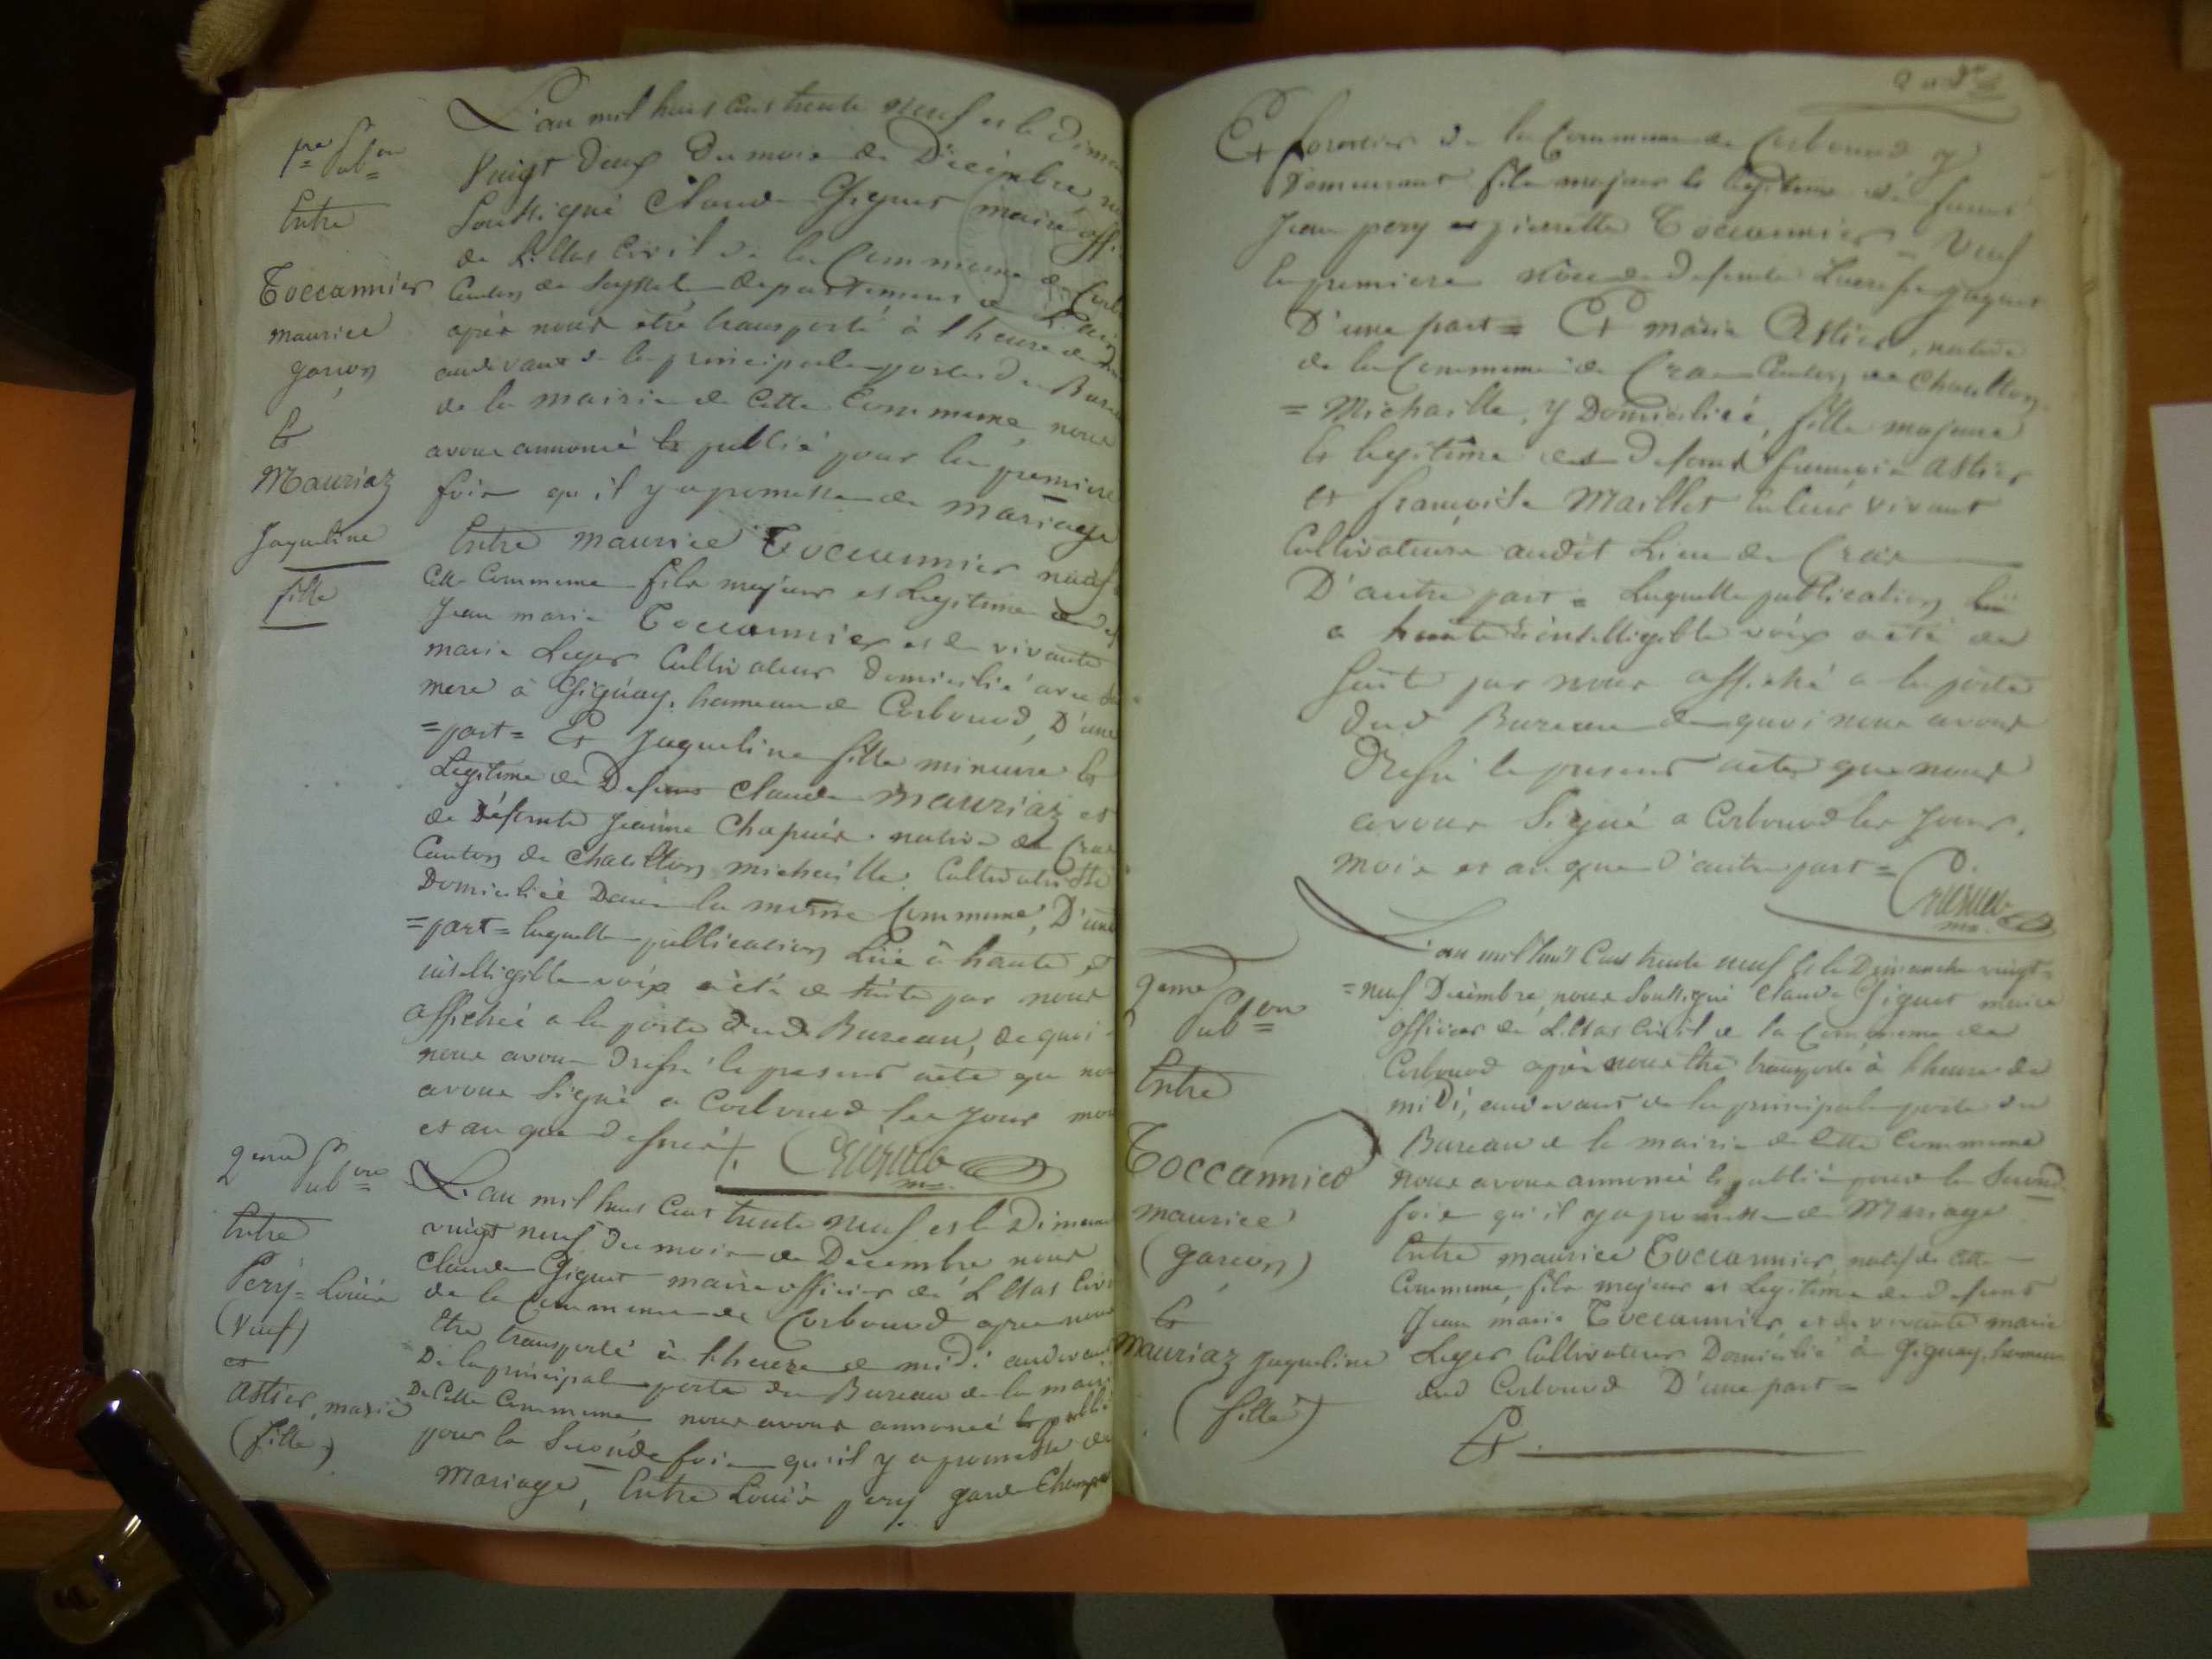 L'an mil huit cent trente neuf et le Diman
1re Pubon
Vingt Deux Du mois de Décembre, n
Entre
Soussigné Claude Giguet maire offi
de L'Etat Civil de la Commune de Corb
Toccannier
Canton de Seyssel, departement de L'ain
maurice
après nous être transporté à l'heure de
garçon
audevant de la principale porte du Bure
de la mairie de Cette Commune, nous
&
avons annoncé & publié pour la premiere
Mauriaz
fois qu'il y a promesse de mariage
Jaqueline
Entre maurice Toccannier natif
fille
Cette Commune fils majeur et Legitime de
Jean marie Toccannier et de vivante
marie Leger Cultivateur Domicilié avec sa
mere à Gignay, hameau de Corbonod, D'une
=part= Et Jaqueline fille mineure &
Legitime de Defunt Claude Mauriaz et
de Défunte Jeanne Chapuis native de Craz
Canton de Chatillon michaille Cultivatrice
Domiciliée Dans la même Commune, D'une
=part= laquelle publication Lue à haute et
intelligible voix a été de suite par nous
affichée a la porte dud Bureau, de quoi
nous avons Dressé le present acte que nou
avons Signé a Corbonod les jour moi
et an que dessus /.
2eme Pubon
L'an mil huit Cent trente neuf et le Diman
Entre
vingt neuf Du mois de Décembre nous
Pery = Louis
Claude Giguet maire officier de L'Etat Civi
(Veuf)
de la Commune de Corbonod apres nous
et
Etre transporté à l'heure de midi audevant
Astier, marie
De la principale porte du Bureau de la mairi
(fille)
De Cette Commune, nous avons annoncé & publié
pour la Seconde fois qu'il y a promesse de
Mariage, Entre Louis pery garde Champe
Et forestier de la Commune de Corbonod y
Demeurant fils majeur & legitime de feus
Jean pery et pierrette Toccannier = Veuf
en premiere nôce de defunte Josephe Jaquet
D'une part = Et marie Astier, native
de la Commune de Craz Canton de Chatillon
= Michaille, y Domiciliée, fille majeure
& legitime de Defunt françois Astier
et françoise Maillet En leur vivant
Cultivateurs audit Lieu de Craz
D'autre part = Laquelle publication Lue
a haute & intelligible voix a été de
Suite par nous affiché a la porte
Dud Bureau de quoi nous avons
Dressé le present acte que nous
avons Signé a Corbonod les Jour,
mois et an que d'autre part =
L'an mil huit Cent trente neuf & le Dimanche vingt=
2eme
=neuf Décembre, nous Soussigné Claude Giguet maire
Pubon
officier de L'Etat Civil de la Commune de
Corbonod après nous Etre transporté à l'heure de
Entre
midi, audevant de la principale porte du
Bureau de la mairie de Cette Commune
Toccannier
nous avons annoncé & publié pour la Seconde
maurice
fois qu'il y a promesse de Mariage
(garçon)
Entre maurice Toccannier, natif de Cette
Commune, fils majeur et Legitime de defunt
&
Jean marie Toccannier, et de vivante marie
Mauriaz Jaqueline
Leger Cultivateur Domicilié à Gignay, hameau
(fille)
dud Corbonod D'une part =
Et